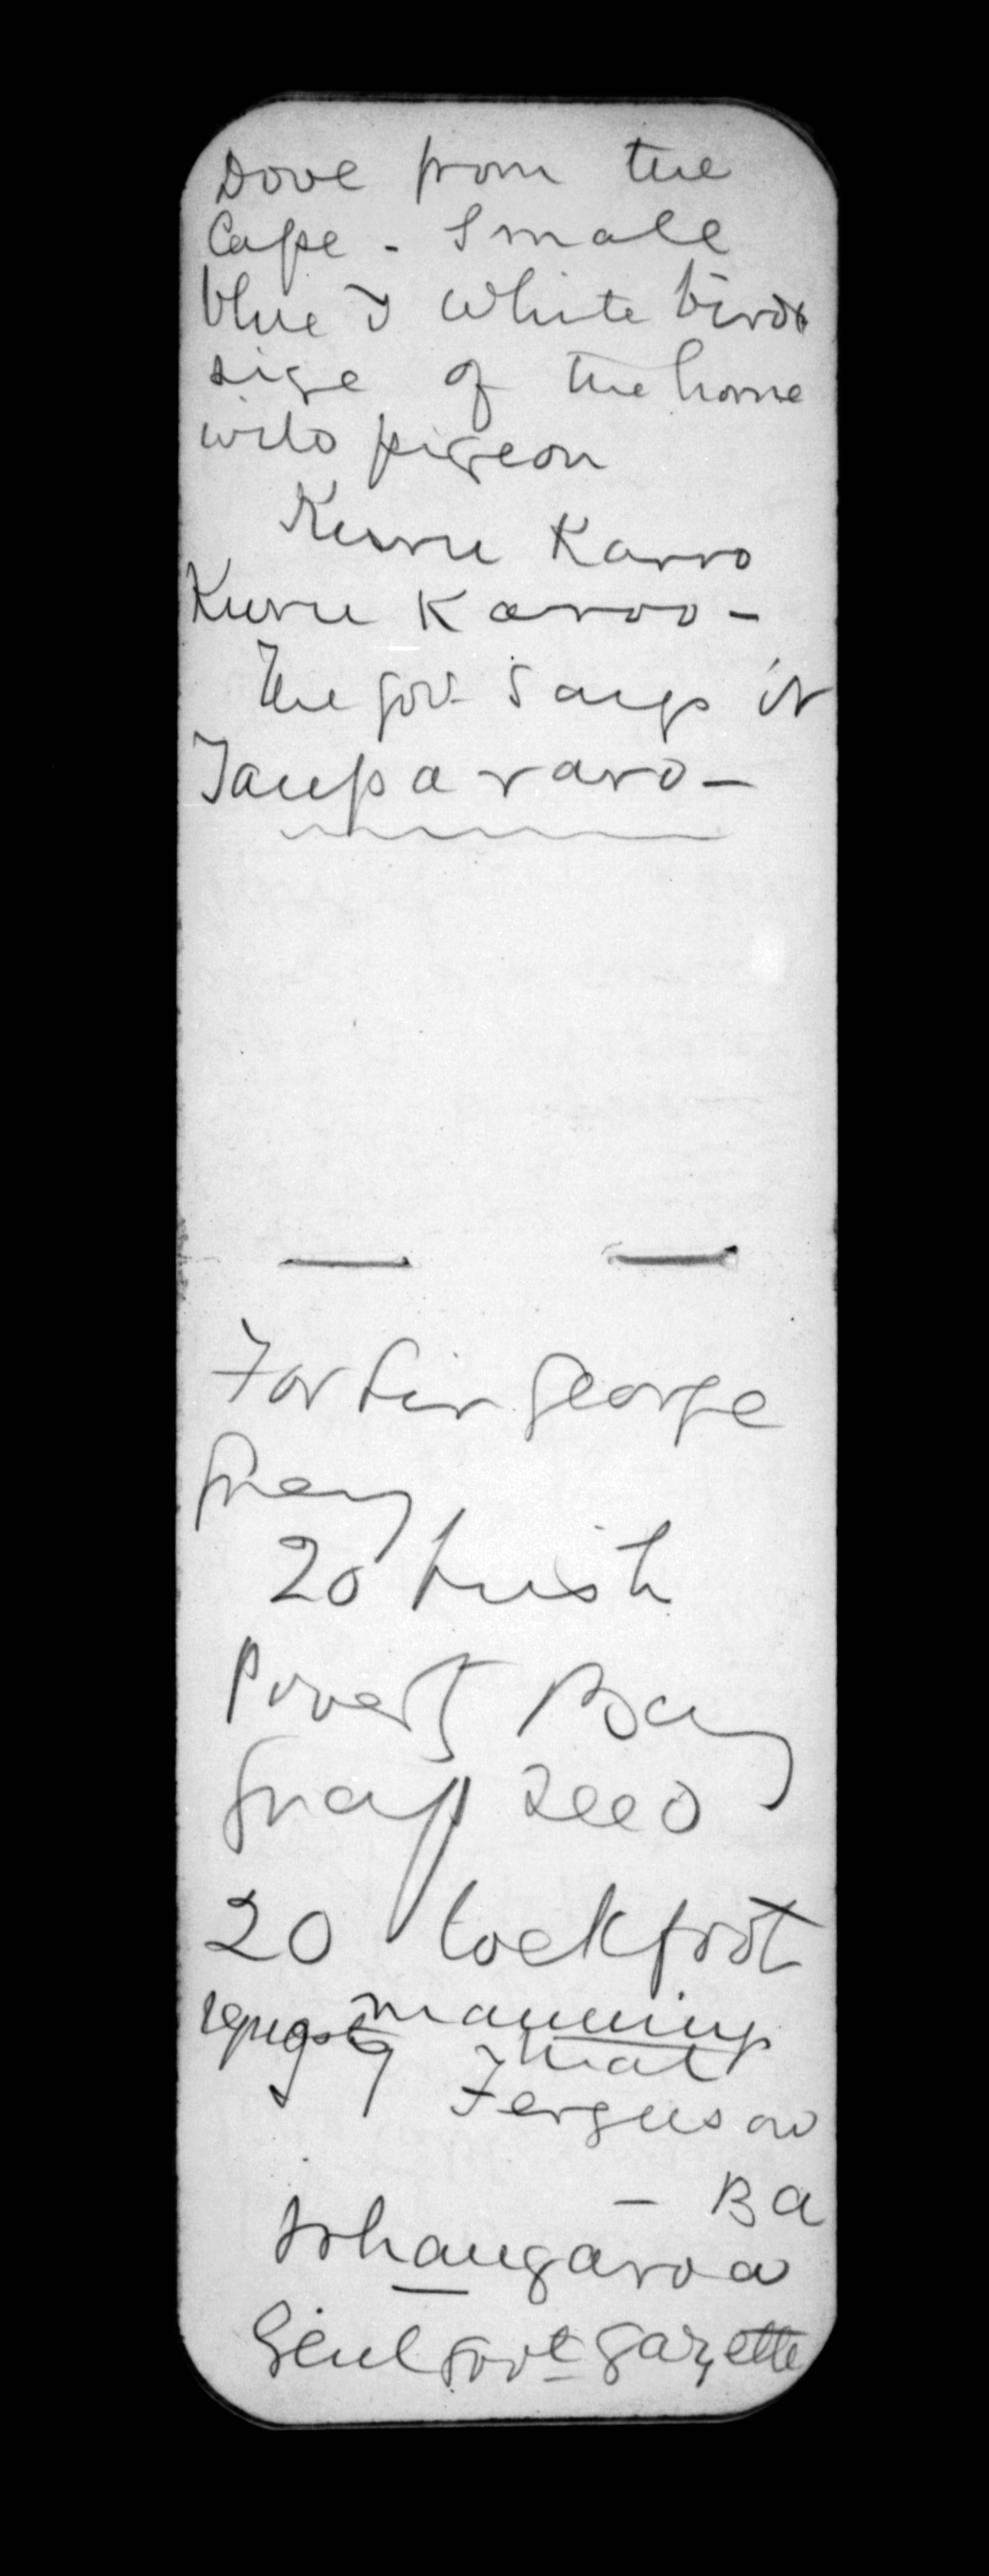 Dove from the
Cape - Small
blue & white birds
size of the home
wild pigeon
Kuru Karro
Kuru Karoo -
The Govr says it
Taupararo -
For Sir George
Grey
20 bush
Poverty Bay
Grass seed
20 Cocksfoot
manning
that
Ferguson
- Ba
Whangaroa
Genl Govt Gazette